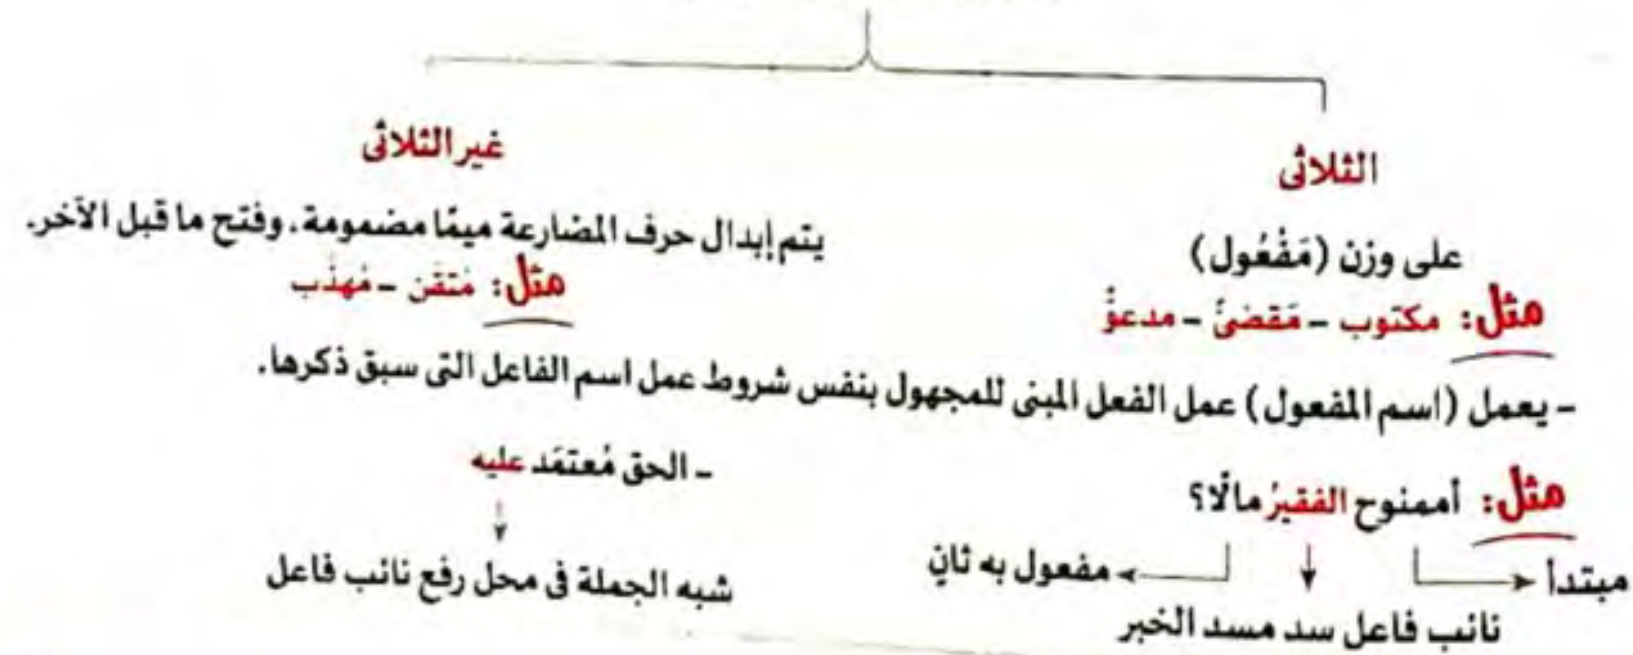 الثلاثى
على وزن (مَفْعُول)
مثل: مكتوب - مَقضىٌّ - مدعوٌّ
غير الثلاثى
يتم إبدال حرف المضارعة ميمًا مضمومة، وفتح ما قبل الآخر.
مثل: مُتقَن - مُهذَّب
- يعمل (اسم المفعول) عمل الفعل المبنى للمجهول بنفس شروط عمل اسم الفاعل التى سبق ذكرها.
مثل: أممنوح الفقيرُ مالًا؟
مبتدأ
نائب فاعل سد مسد الخبر
مفعول به ثانٍ
- الحق مُعتمَد عليه
شبه الجملة فى محل رفع نائب فاعل